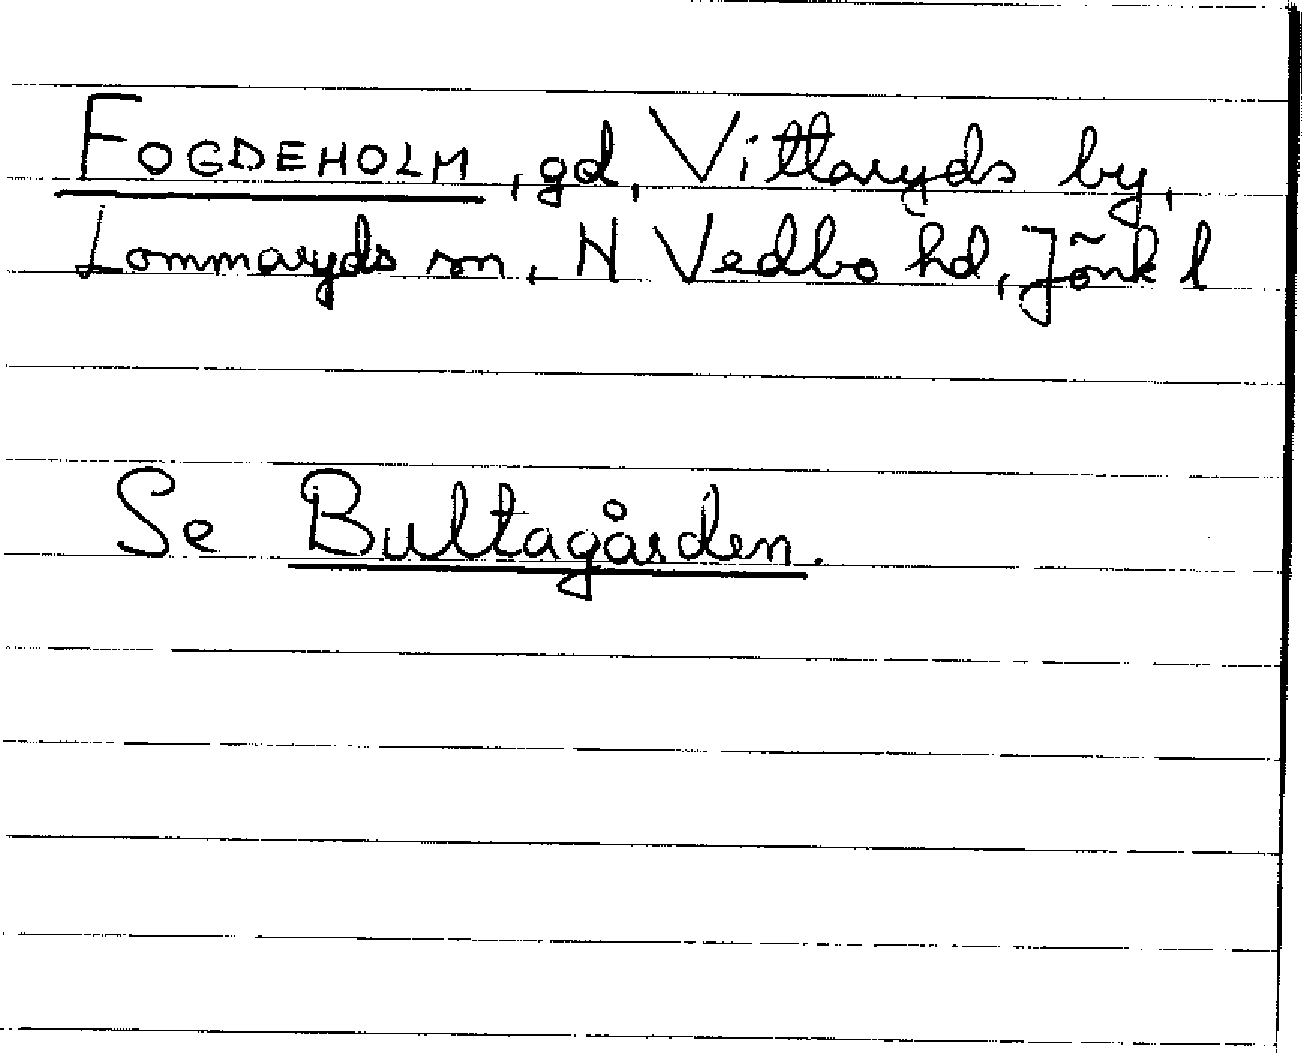 FOGDEHOLM, gd, Vittaryds by,
Lommaryds sn, N Vedbo hd, Jönk l
Se Bultagården.